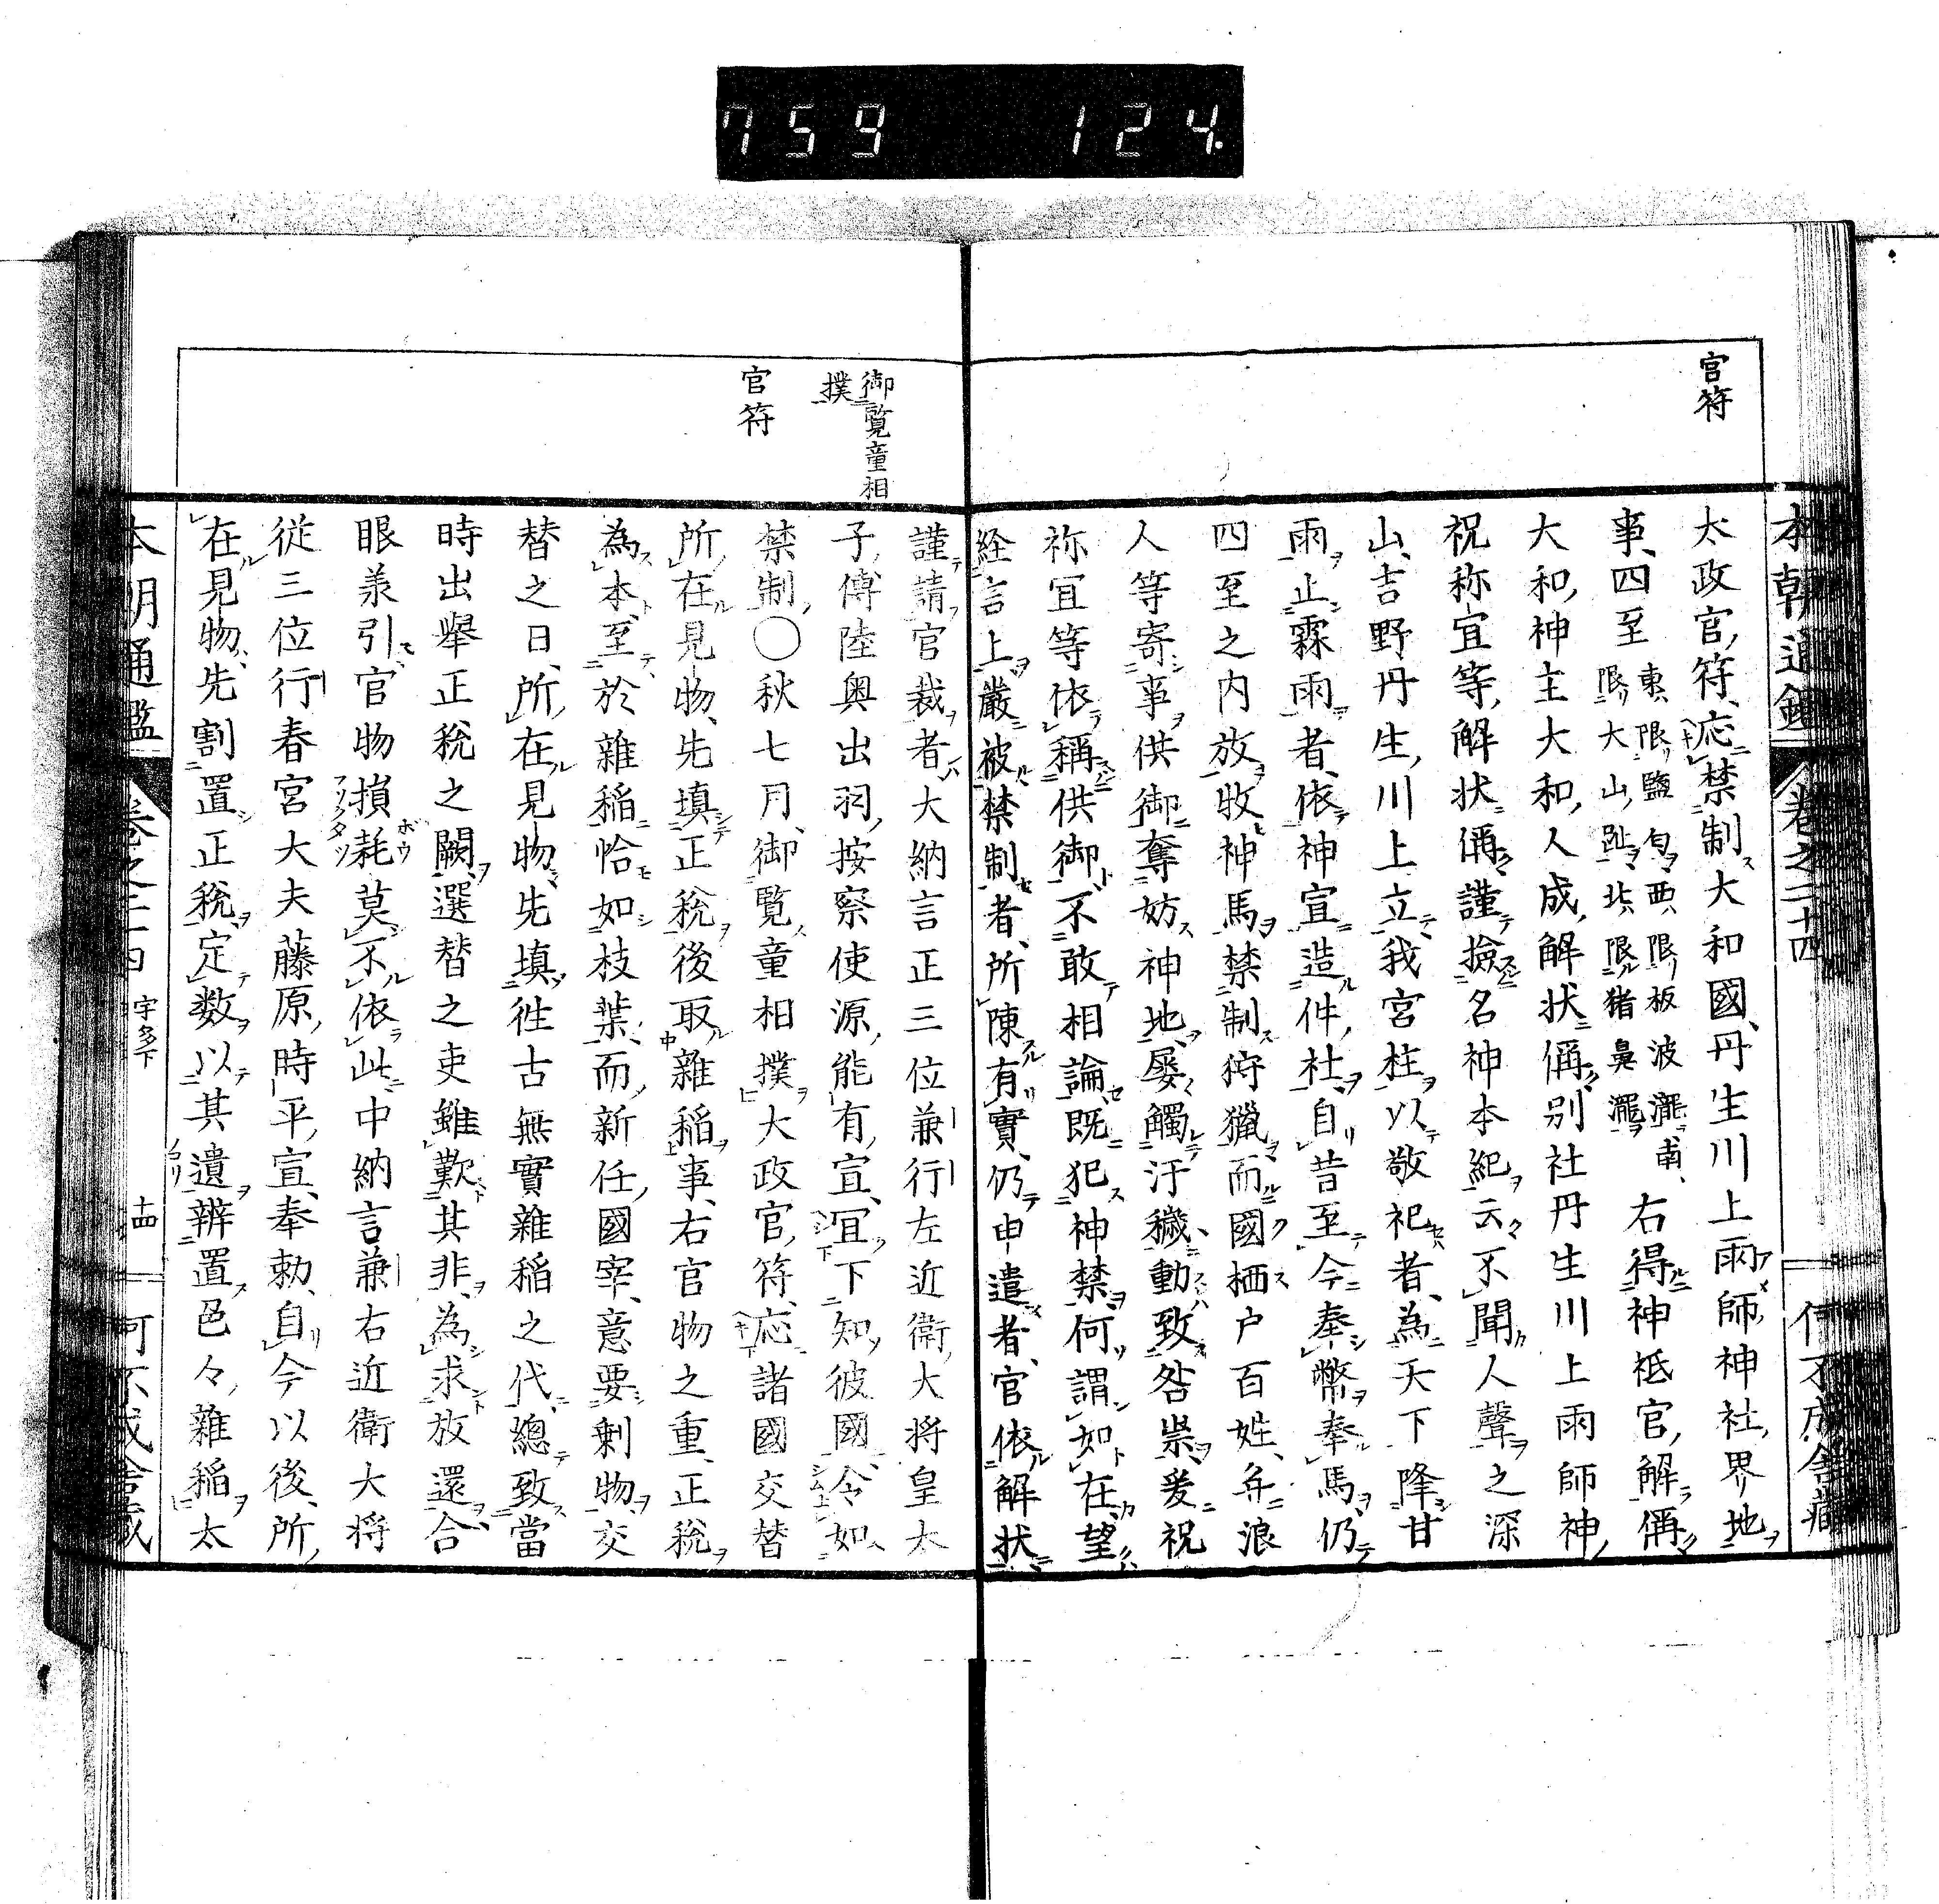 759 124.
本朝通鑑 卷之二十四 何不成舎藏
官符
太政官符応禁制大和國丹生川上雨師神社界地
事四至東限鹽匂西限板波瀧南限大山趾北限猪鼻瀧右得神祇官解偁
大和神主大和人成解状偁別社丹生川上雨師神
祝祢宜等解状偁謹撿名神本紀云不聞人聲之深
山吉野丹生川上立我宮柱以敬祀者為天下降甘
雨止霖雨者依神宣造件社自昔至今奉幣奉馬仍
四至之内放牧神馬禁制狩獵而國栖戸百姓并浪
人等寄事供御奪妨神地屡觸汙穢動致咎祟爰祝
祢宜等依稱供御不敢相論既犯神禁何謂如在望
経言上嚴被禁制者所陳有實仍申遣者官依解状
御覧童相撲
官符
謹請官裁者大納言正三位兼行左近衛大将皇太
子傅陸奥出羽按察使源能有宣宜下知彼國令如
禁制○秋七月御覧童相撲大政官符応諸國交替
所在見物先填正税後取雜稲事右官物之重正税
為本至於雜稲恰如枝葉而新任國宰意要剰物交
替之日所在見物先填徃古無實雜稲之代總致當
時出擧正税之闕選替之吏雖歎其非為求放還合
眼羕引官物損耗莫不依此中納言兼右近衛大将
從三位行春宮大夫藤原時平宣奉勅自今以後所
在見物先割置正税定数以其遺辨置色々雜稲太
本朝通鑑 卷之二十四 宇多下 十四 何不成舎藏